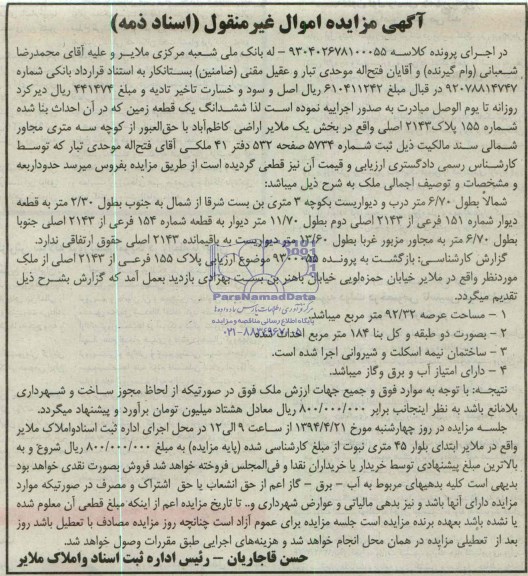 آگهی مزایده اموال غیرمنقول (اسناد ذمه)
در اجرای پرونده کلاسه ۹۳۰۴۰۲۶۷۸۱۰۰۰۵۵ - له بانک ملی شعبه مرکزی ملایر و علیه آقای محمدرضا
شعبانی (وام گیرنده) و آقایان فتح‌اله موحدی تبار و عقیل مقنی (ضامنین) بستانکار به استناد قرارداد بانکی شماره
۹۲۰۷۸۸۱۴۷۴۷ در قبال مبلغ ۶۱۰۴۱۱۲۴۲ ریال اصل و سود و خسارت تاخیر تادیه و مبلغ ۴۴۱۴۷۴ ریال دیرکرد
روزانه تا یوم الوصل مبادرت به صدور اجراییه نموده است لذا ششدانگ یک قطعه زمین که در آن احداث بنا شده
شماره ۱۵۵ پلاک ۲۱۴۳ اصلی واقع در بخش یک ملایر اراضی کاظم‌آباد با حق‌العبور از کوچه سه متری مجاور
شمالی سند مالکیت ذیل ثبت شماره ۵۷۳۴ صفحه ۵۳۲ دفتر ۴۱ ملکی آقای فتح‌اله موحدی تبار که توسط
کارشناس رسمی دادگستری ارزیابی و قیمت آن نیز قطعی گردیده است از طریق مزایده بفروس میرسد حدوداربعه
و مشخصات و توصیف اجمالی ملک به شرح ذیل میباشد:
شمالا بطول ۶/۷۰ متر درب و دیواریست بکوچه ۳ متری بن بست شرقا از شمال به جنوب بطول ۲/۳۰ متر به قطعه
دیوار شماره ۱۵۱ فرعی از ۲۱۴۳ اصلی دوم بطول ۱۱/۷۰ متر دیوار به قطعه شماره ۱۵۴ فرعی از ۲۱۴۳ اصلی جنوبا
بطول ۶/۷۰ متر به مجاور مزبور غربا بطول ۱۳/۶۰ متر دیواریست به باقیمانده ۲۱۴۳ اصلی حقوق ارتفاقی ندارد.
گزارش کارشناسی: بازگشت به پرونده ۹۳۰۰۰۵۵ موضوع ارزیابی پلاک ۱۵۵ فرعی از ۲۱۴۳ اصلی از ملک
موردنظر واقع در ملایر خیابان حمزه‌لویی خیابان باهنر بن بست بهزادی بازدید بعمل آمد که گزارش بشرح ذیل
تقدیم میگردد.
۱ - مساحت عرصه ۹۲/۳۲ متر مربع میباشد
۲ - بصورت دو طبقه و کل بنا ۱۸۴ متر مربع احداث شده
۳ - ساختمان نیمه اسکلت و شیروانی اجرا شده است.
۴ - دارای امتیاز آب و برق وگاز میباشد.
نتیجه: با توجه به موارد فوق و جمیع جهات ارزش ملک فوق در صورتیکه از لحاظ مجوز ساخت و شهرداری
بلامانع باشد به نظر اینجانب برابر ۸۰۰/۰۰۰/۰۰۰ ریال معادل هشتاد میلیون تومان برآورد و پیشنهاد میگردد.
جلسه مزایده در روز چهارشنبه مورخ ۱۳۹۴/۴/۲۱ از ساعت ۹ الی ۱۲ در محل اجرای اداره ثبت اسنادواملاک ملایر
واقع در ملایر ابتدای بلوار ۴۵ متری ثبوت از مبلغ کارشناسی شده (پایه مزایده) به مبلغ ۸۰۰/۰۰۰/۰۰۰ ریال شروع و به
بالاترین مبلغ پیشنهادی توسط خریدار یا خریداران نقدا و فی‌المجلس فروخته خواهد شد فروش بصورت نقدی خواهد بود
بدیهی است کلیه بدهیهای مربوط به آب - برق - گاز اعم از حق انشعاب یا حق اشتراک و مصرف در صورتیکه موارد
مزایده دارای آنها باشد و نیز بدهی مالیاتی و عوارض شهرداری و.. تا تاریخ مزایده اعم از اینکه مبلغ قطعی آن معلوم شده
یا نشده باشد بعهده برنده مزایده است جلسه مزایده برای عموم آزاد است چنانچه روز مزایده مصادف با تعطیل باشد روز
بعد از تعطیلی مزایده در همان محل انجام خواهد شد و هزینه‌های اجرایی طبق مقررات وصول خواهد شد.
حسن قاجاریان - رئیس اداره ثبت اسناد واملاک ملایر
ParsNamadData
پایگاه اطلاع رسانی مناقصه و مزایده
۰۲۱-۸۸۳۴۹۶۷۰